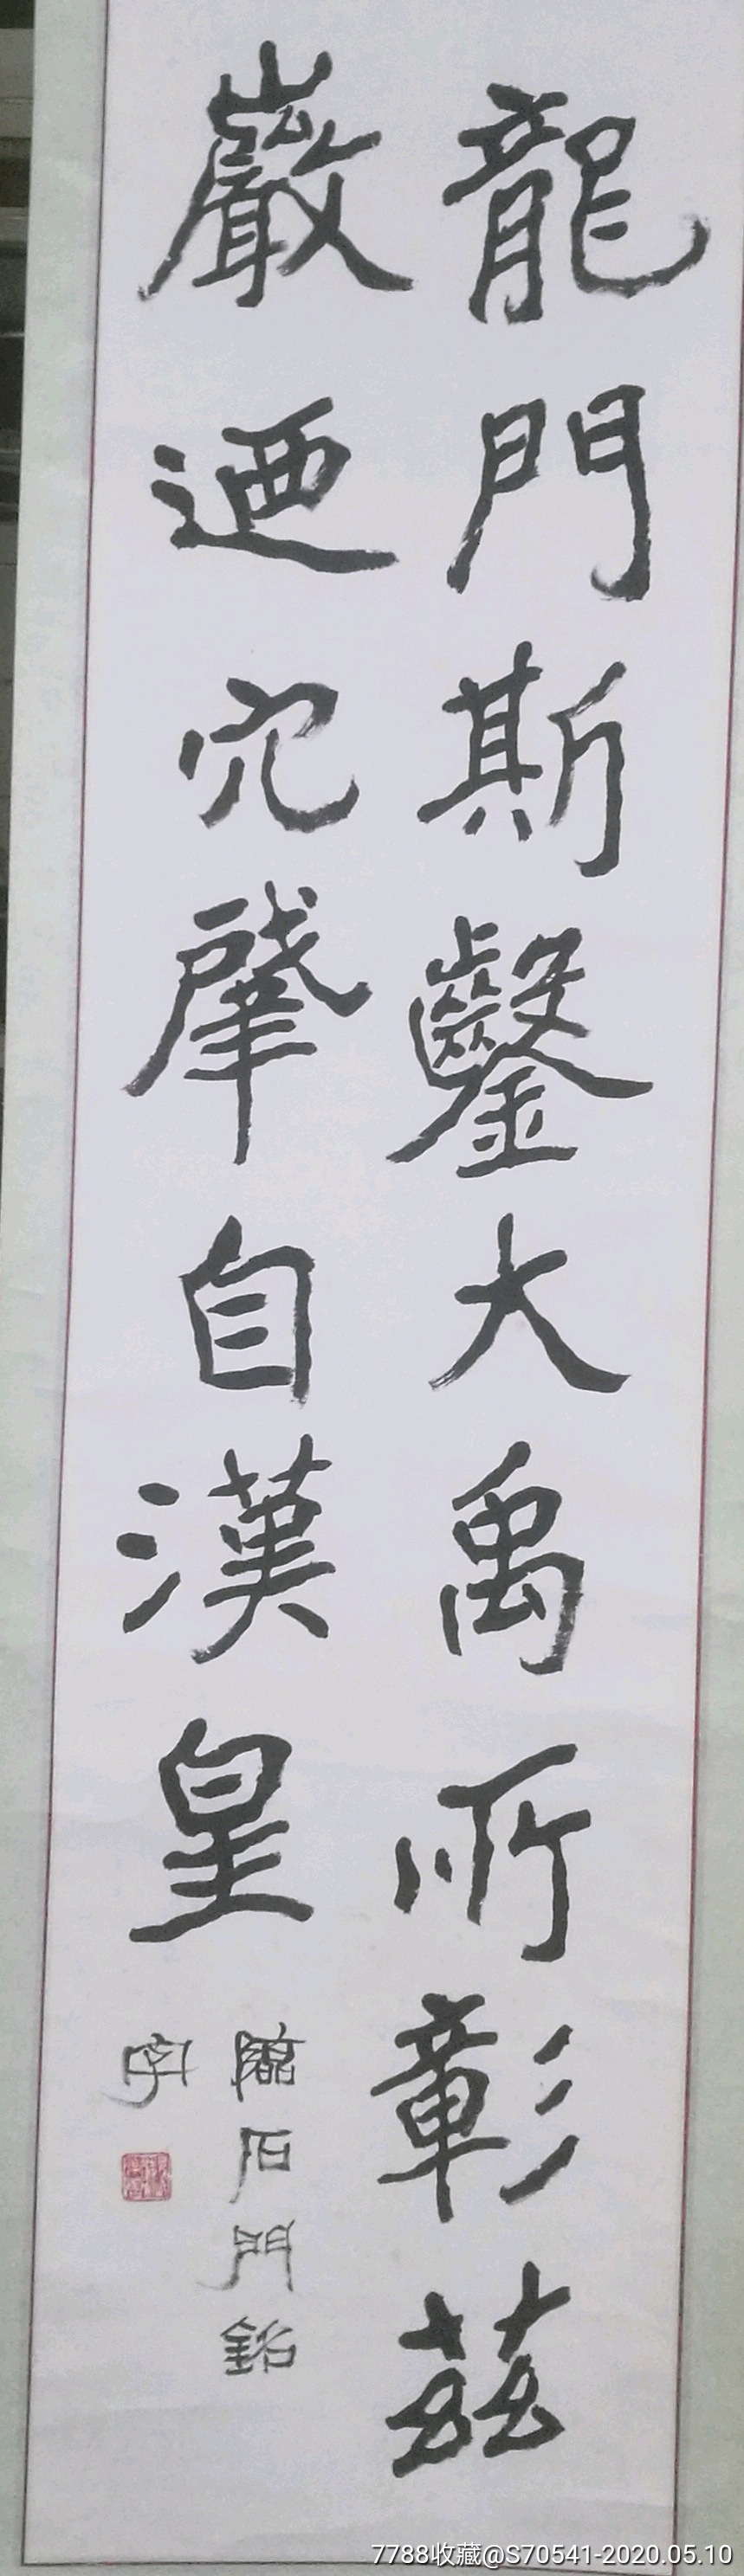 龍門斯鑿大禹所彰茲
巖迺穴肇自漢皇
臨石門銘
字
7788收藏@S70541-2020.05.10